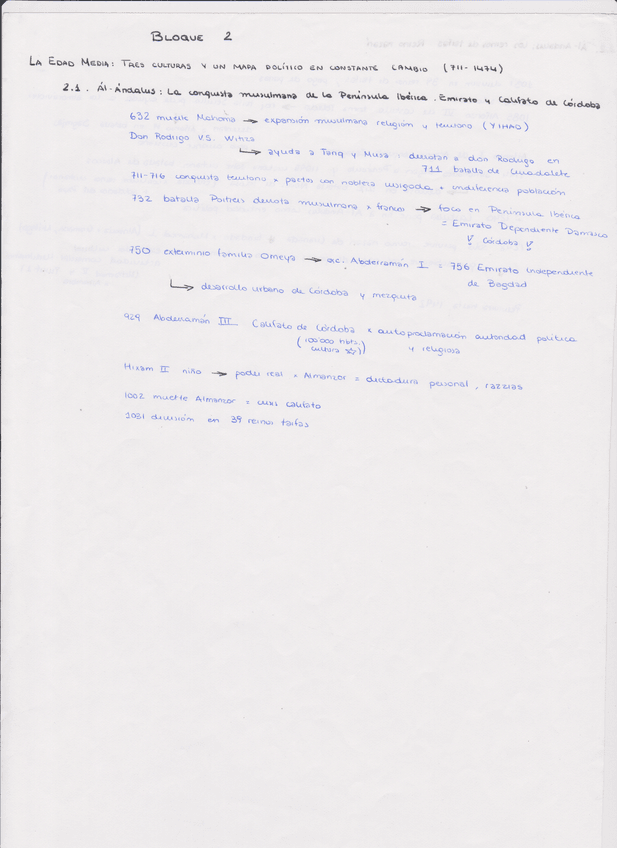 BLOQUE 2
LA EDAD MEDIA: TRES CULTURAS Y UN MAPA POLÍTICO EN CONSTANTE CAMBIO (711-1474)
2.1. Al-Ándalus: La conquista musulmana de la Península Ibérica. Emirato y Califato de Córdoba
632 muere Mahoma → expansión musulmana religión y terreno (YIHAD)
Don Rodrigo V.S. Witiza
↳ ayuda a Tariq y Musa: derrotan a don Rodrigo en
711 batalla de Guadalete
711-716 conquista territorio x pactos con nobleza visigoda + indiferencia población
732 batalla Poitiers derrota musulmana x francos → foco en Península Ibérica
= Emirato Dependiente Damasco
Córdoba
750 exterminio familia Omeya → exc. Abderramán I = 756 Emirato independiente
de Bagdad
↳ desarrollo urbano de Córdoba y mezquita
929 Abderramán III Califato de Córdoba x autoproclamación autoridad política
(100 000 habts. y religiosa
cultura)
Hixam II niño → poder real x Almanzor = dictadura personal, razzias
1002 muerte Almanzor = crisis califato
1031 división en 39 reinos taifas